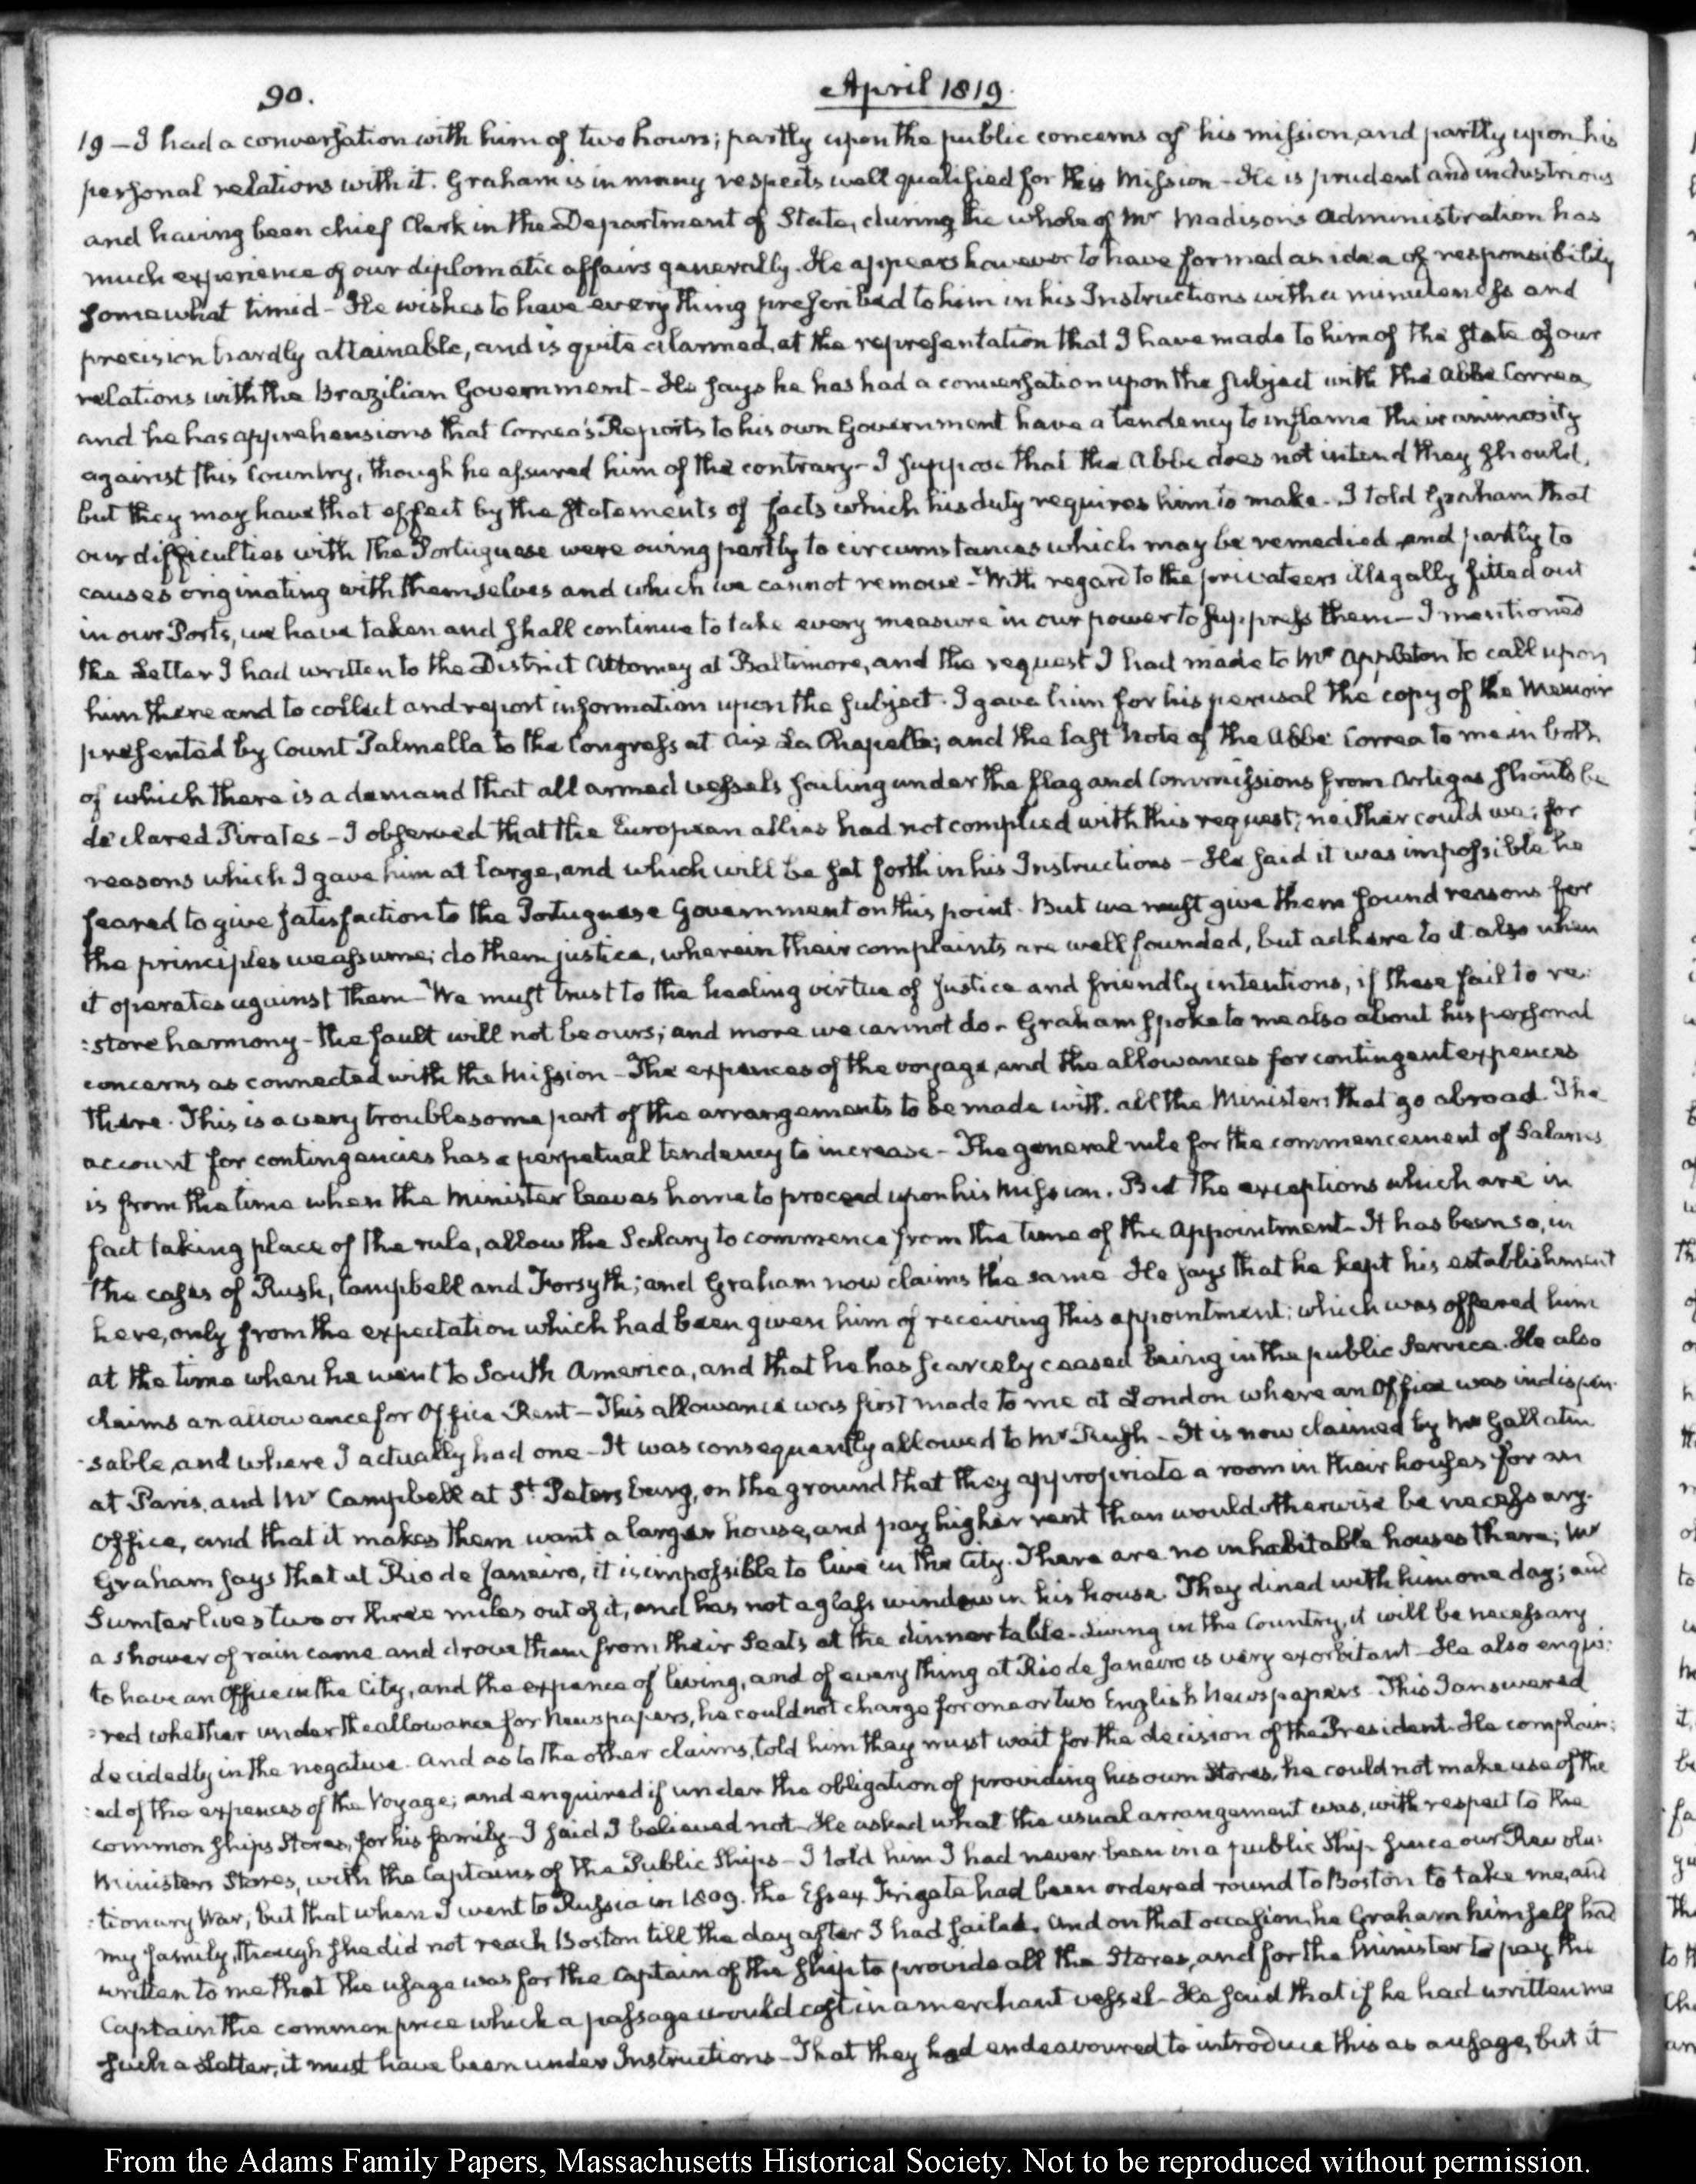 90.
April 1819.
19 - I had a conversation with him of two hours; partly upon the public concerns of his mission, and partly upon his
personal relations with it. Graham is in many respects well qualified for this Mission - He is prudent and industrious
and having been chief Clerk in the Department of State, during the whole of Mr Madison's Administration has
much experience of our diplomatic affairs generally. He appears however to have formed an idea of responsibility
somewhat timid - He wishes to have every thing prescribed to him in his Instructions with a minuteness and
precision hardly attainable, and is quite alarmed, at the representation that I have made to him of the state of our
relations with the Brazilian Government - He says he has had a conversation upon the subject with the Abbé Correa,
and he has apprehensions that Correa's Reports to his own Government have a tendency to inflame their animosity
against this Country, though he assured him of the contrary - I suppose that the Abbé does not intend they should,
but they may have that effect by the statements of facts which his duty requires him to make. I told Graham that
our difficulties with the Portuguese were owing partly to circumstances which may be remedied and partly to
causes originating with themselves and which we cannot remove - With regard to the privateers illegally fitted out
in our Ports, we have taken and shall continue to take every measure in our power to suppress them - I mentioned
the Letter I had written to the District Attorney at Baltimore, and the request I had made to Mr Appleton to call upon
him there and to collect and report information upon the subject. I gave him for his perusal the copy of the Memoir
presented by Count Palmella to the Congress at Aix La Chapelle; and the last Note of the Abbé Correa to me in both
of which there is a demand that all armed vessels sailing under the flag and Commissions from Artigas should be
declared Pirates - I observed that the European allies had not complied with this request; neither could we; for
reasons which I gave him at large, and which will be set forth in his Instructions - He said it was impossible he
feared to give satisfaction to the Portuguese Government on this point. But we must give them sound reasons for
the principles we assume; do them justice, wherein their complaints are well founded, but adhere to it also when
it operates against them - We must trust to the healing virtue of Justice and friendly intentions, if these fail to re:
:store harmony - the fault will not be ours; and more we cannot do - Graham spoke to me also about his personal
concerns as connected with the Mission - The expences of the voyage, and the allowances for contingent expences
there. This is a very troublesome part of the arrangements to be made with all the Ministers that go abroad. The
account for contingencies has a perpetual tendency to increase - The general rule for the commencement of Salaries
is from the time when the Minister leaves home to proceed upon his Mission. But the exceptions which are in
fact taking place of the rule, allow the Salary to commence from the time of the Appointment - It has been so, in
the cases of Rush, Campbell and Forsyth; and Graham now claims the same - He says that he kept his establishment
here, only from the expectation which had been given him of receiving this appointment; which was offered him
at the time when he went to South America, and that he has scarcely ceased being in the public Service. He also
claims an allowance for Office Rent - This allowance was first made to me at London where an Office was indispen-
-sable, and where I actually had one - It was consequently allowed to Mr Rush - It is now claimed by Mr Gallatin
at Paris, and Mr Campbell at St Petersburg, on the ground that they appropriate a room in their houses for an
Office, and that it makes them want a larger house, and pay higher rent than would otherwise be necessary.
Graham says that at Rio de Janeiro, it is impossible to live in the City. There are no inhabitable houses there; Mr
Sumter lives two or three miles out of it, and has not a glass window in his house. They dined with him one day; and
a shower of rain came and drove them from their seats at the dinner table. Living in the Country, it will be necessary
to have an Office in the City, and the expence of living, and of every thing at Rio de Janeiro is very exorbitant - He also enqui:
:red whether under the allowance for Newspapers, he could not charge for one or two English Newspapers - This I answered
decidedly in the negative. And as to the other claims, told him they must wait for the decision of the President. He complain:
:ed of the expences of the Voyage; and enquired if under the obligation of providing his own Stores, he could not make use of the
common ships Stores, for his family - I said I believed not - He asked what the usual arrangement was, with respect to the
Ministers Stores, with the Captains of the Public Ships - I told him I had never been in a public Ship since our Revolu:
:tionary War; but that when I went to Russia in 1809. the Essex Frigate had been ordered round to Boston to take me, and
my family, though she did not reach Boston till the day after I had sailed. And on that occasion, he Graham himself had
written to me that the usage was for the Captain of the ship to provide all the Stores, and for the Minister to pay the
Captain the common price which a passage would cost in a merchant vessel - He said that if he had written me
such a Letter, it must have been under Instructions - That they had endeavoured to introduce this as a usage, but it
From the Adams Family Papers, Massachusetts Historical Society. Not to be reproduced without permission.